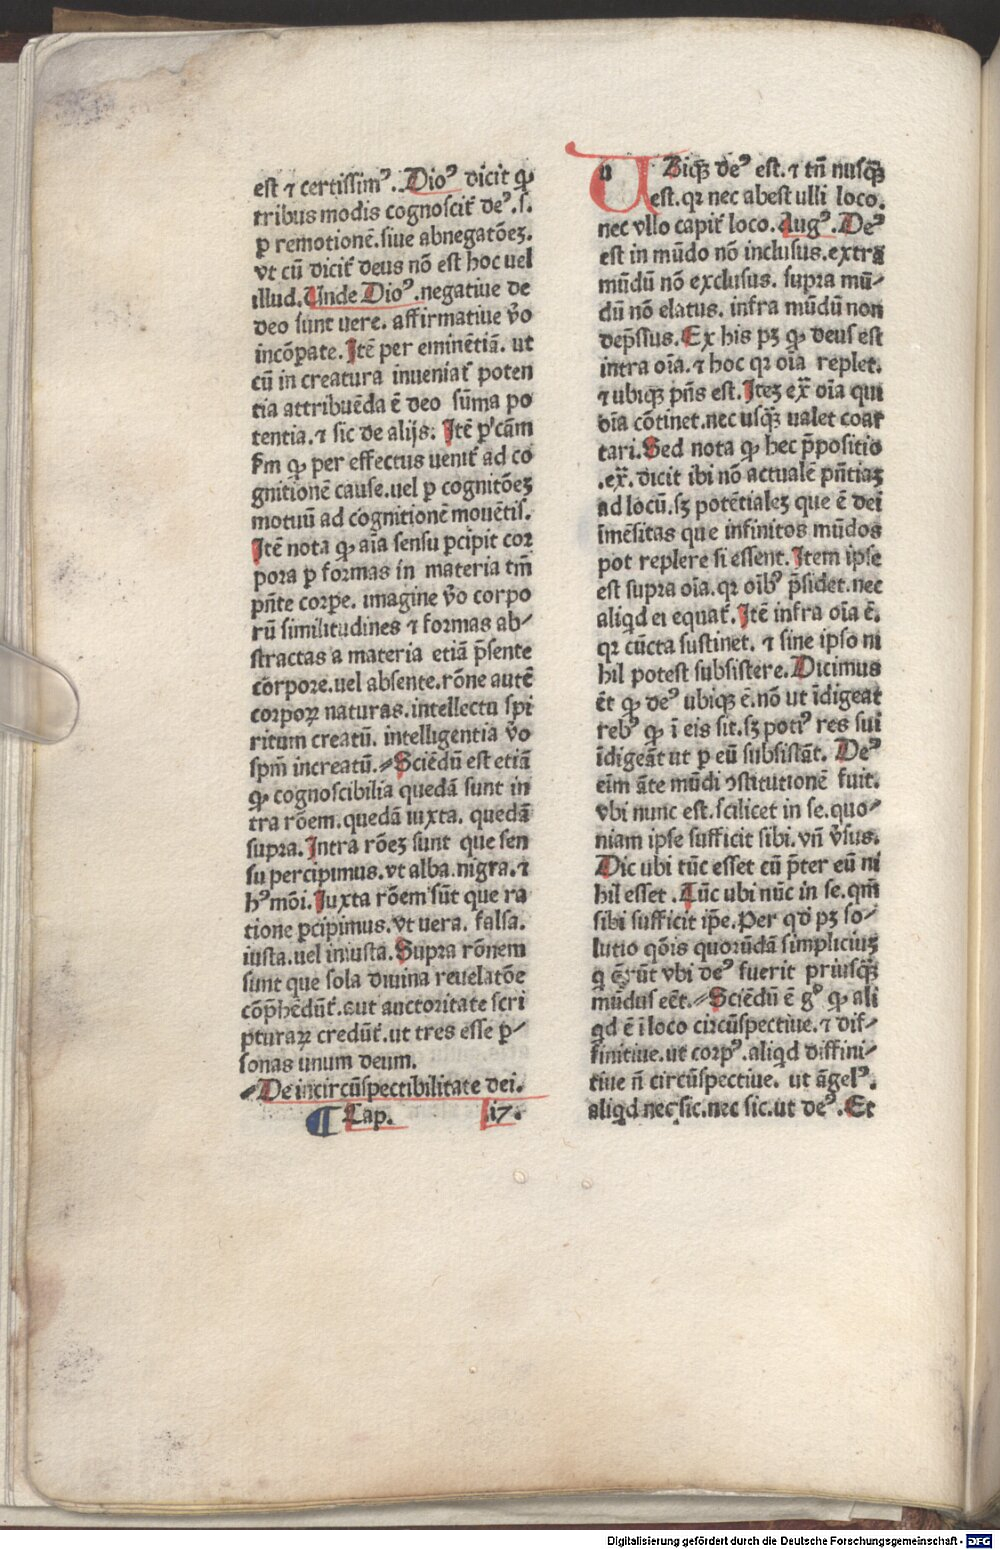 est ⁊ certissimꝰ. Dioꝰ dicit ꝙ
tribus modis cognoscit̃ deꝰ. s.
ꝑ remotionē. siue abnegatōeꝫ.
vt cū dicit̃ deus nō est hoc uel
illud. Unde Dioꝰ. negatiue de
deo sunt uere. affirmatiue v̄o
incōpate. Itē per eminētiā. ut
cū in creatura inueniat̃ poten
tia attribuēda ē deo sūma po
tentia. ⁊ sic de alijs. Itē ꝑ cām
ẜm ꝙ per effectus uenit̃ ad co
gnitionē cause. uel ꝑ cognitōeꝫ
motiuū ad cognitionē mouētis.
Itē nota ꝙ aīa sensu ꝑcipit cor
pora ꝑ formas in materia tm̄
pn̄te corpe. imagine v̄o corpo
rū similitudines ⁊ formas ab⸗
stractas a materia etiā p̄sente
corpore. uel absente. rōne autē
corpoꝝ naturas. intellectu spi
ritum creatū. intelligentia v̄o
spm̄ increatū. Sciēdū est etiā
ꝙ cognoscibilia quedā sunt in
tra rōem. quedā iuxta. quedā
supra. Intra rōeꝫ sunt que sen
su percipimus. vt alba. nigra. ⁊
hꝰmōi. Iuxta rōem sūt que ra
tione ꝑcipimus. vt uera. falsa.
iusta. uel iniusta. Supra rōnem
sunt que sola diuina reuelatōe
cōp̄hēdūt̃. aut auctoritate scri
pturaꝝ credūt̃. ut tres esse ꝑ⸗
sonas unum deum.
De incircūspectibilitate dei.
¶ Cap. .i7.
UBiqꝫ deꝰ est. ⁊ tn̄ nusqꝫ̄
est. qꝛ nec abest ulli loco.
nec vllo capit̃ loco. Augꝰ. Deꝰ
est in mūdo nō inclusus. extra
mūdū nō exclusus. supra mū⸗
dū nō elatus. infra mūdū non
dep̄ssus. Ex his pꝫ ꝙ deus est
intra oīa. ⁊ hoc qꝛ oīa replet.
⁊ ubiqꝫ pn̄s est. Iteꝫ ex̄ oīa qui
oīa cōtinet. nec usqꝫ̄ ualet coar
tari. Sed nota ꝙ hec p̄positio
.ex̄. dicit ibi nō actualē pn̄tiaꝫ
ad locū. sꝫ potētialeꝫ que ē dei
īmēsitas que infinitos mūdos
pot replere si essent. Item ipse
est supra oīa. qꝛ oībꝰ p̄sidet. nec
aliqd ei equat̃. Itē infra oīa ē.
qꝛ cūcta sustinet. ⁊ sine ipso ni
hil potest subsistere. Dicimus
ēt ꝙ deꝰ ubiqꝫ ē. nō ut īdigeat
rebꝰ ꝙ ī eis sit. sꝫ potiꝰ res sui
īdigeāt ut ꝑ eū subsistāt. Deꝰ
eīm āte mūdi ꝯstitutionē fuit.
vbi nunc est. scilicet in se. quo⸗
niam ipse sufficit sibi. vn̄ v̄sus.
Dic ubi tūc esset cū p̄ter eū ni
hil esset. Tūc ubi nūc in se. qm̄
sibi sufficit ip̄e. Per qd pꝫ so⸗
lutio qōis quorūdā simpliciuꝫ
q q̄rūt vbi deꝰ fuerit priusqꝫ̄
mūdus eēt. Sciēdū ē gꝰ ꝙ ali
qd ē ī loco circūspectiue. ⁊ dif⸗
finitiue. ut corpꝰ. aliqd diffini⸗
tiue n̄ circūspectiue. ut āgelꝰ.
aliqd nec sic. nec sic. ut deꝰ. Et
Digitalisierung gefördert durch die Deutsche Forschungsgemeinschaft - DFG